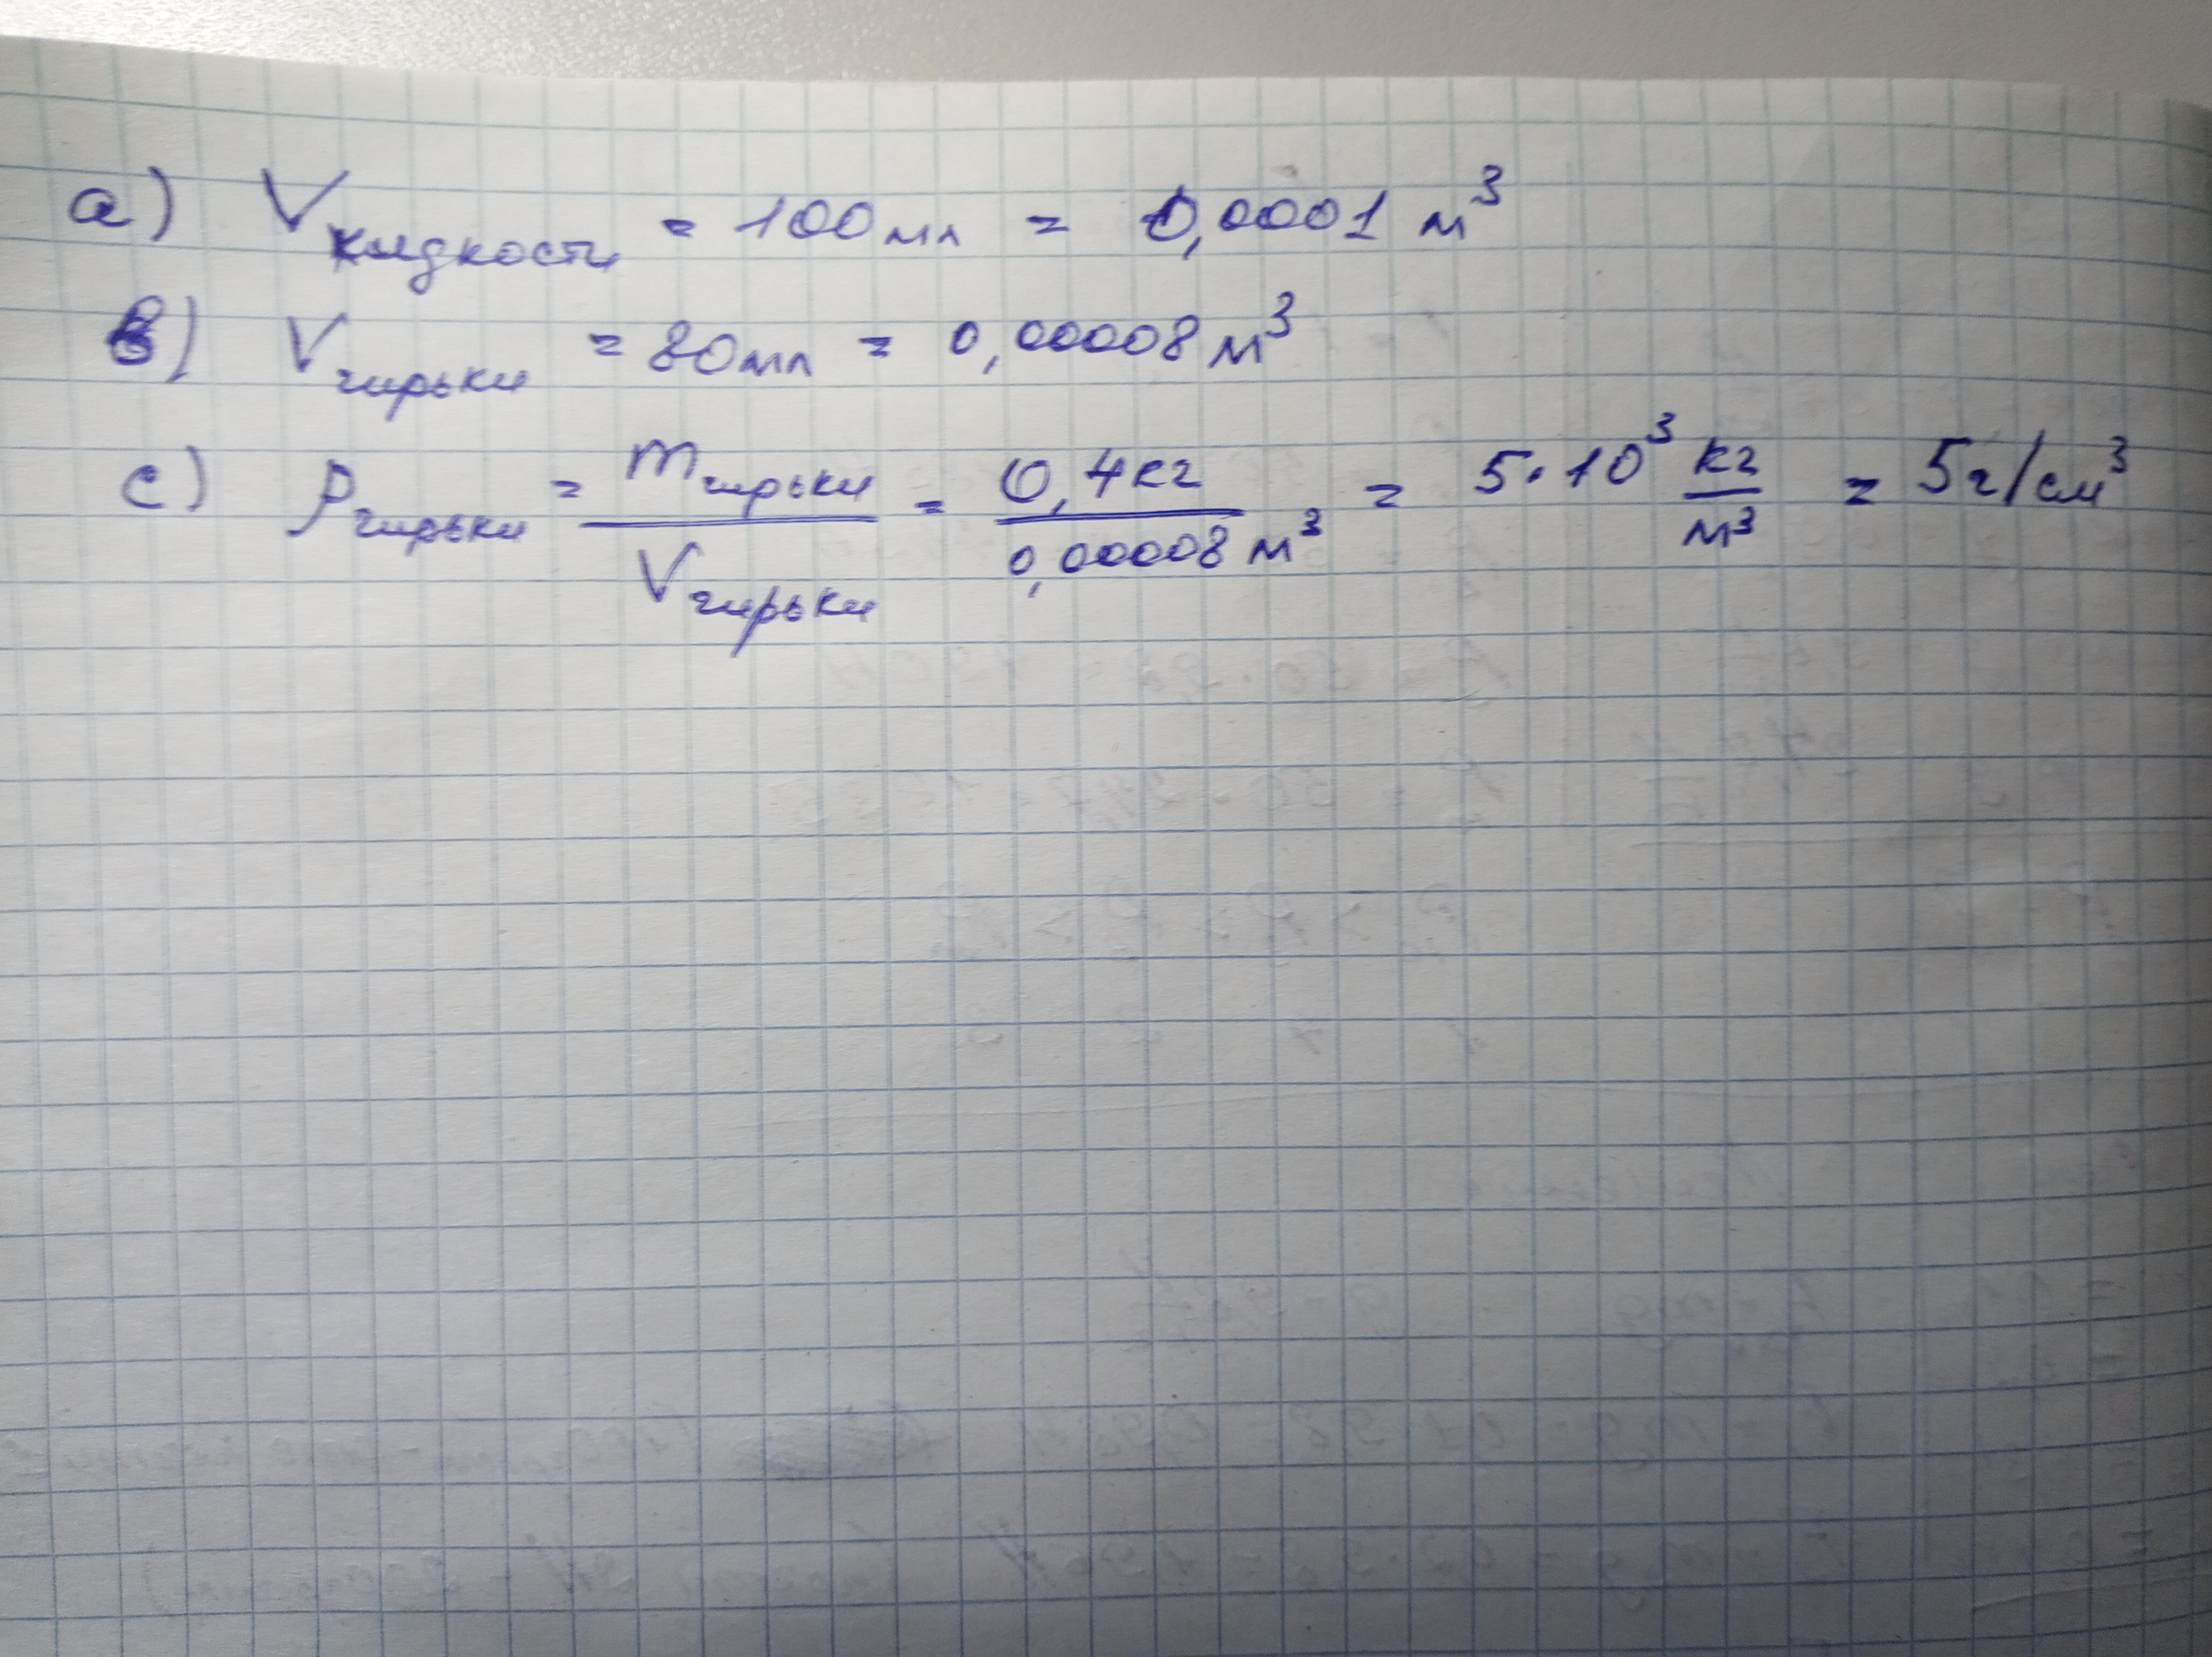 a) Vжидкости = 100мл = 0,0001 м³
в) Vгирьки = 80мл = 0,00008 м³
c) ρгирьки = mгирьки / Vгирьки = 0,4кг / 0,00008 м³ = 5·10³ кг/м³ = 5г/см³